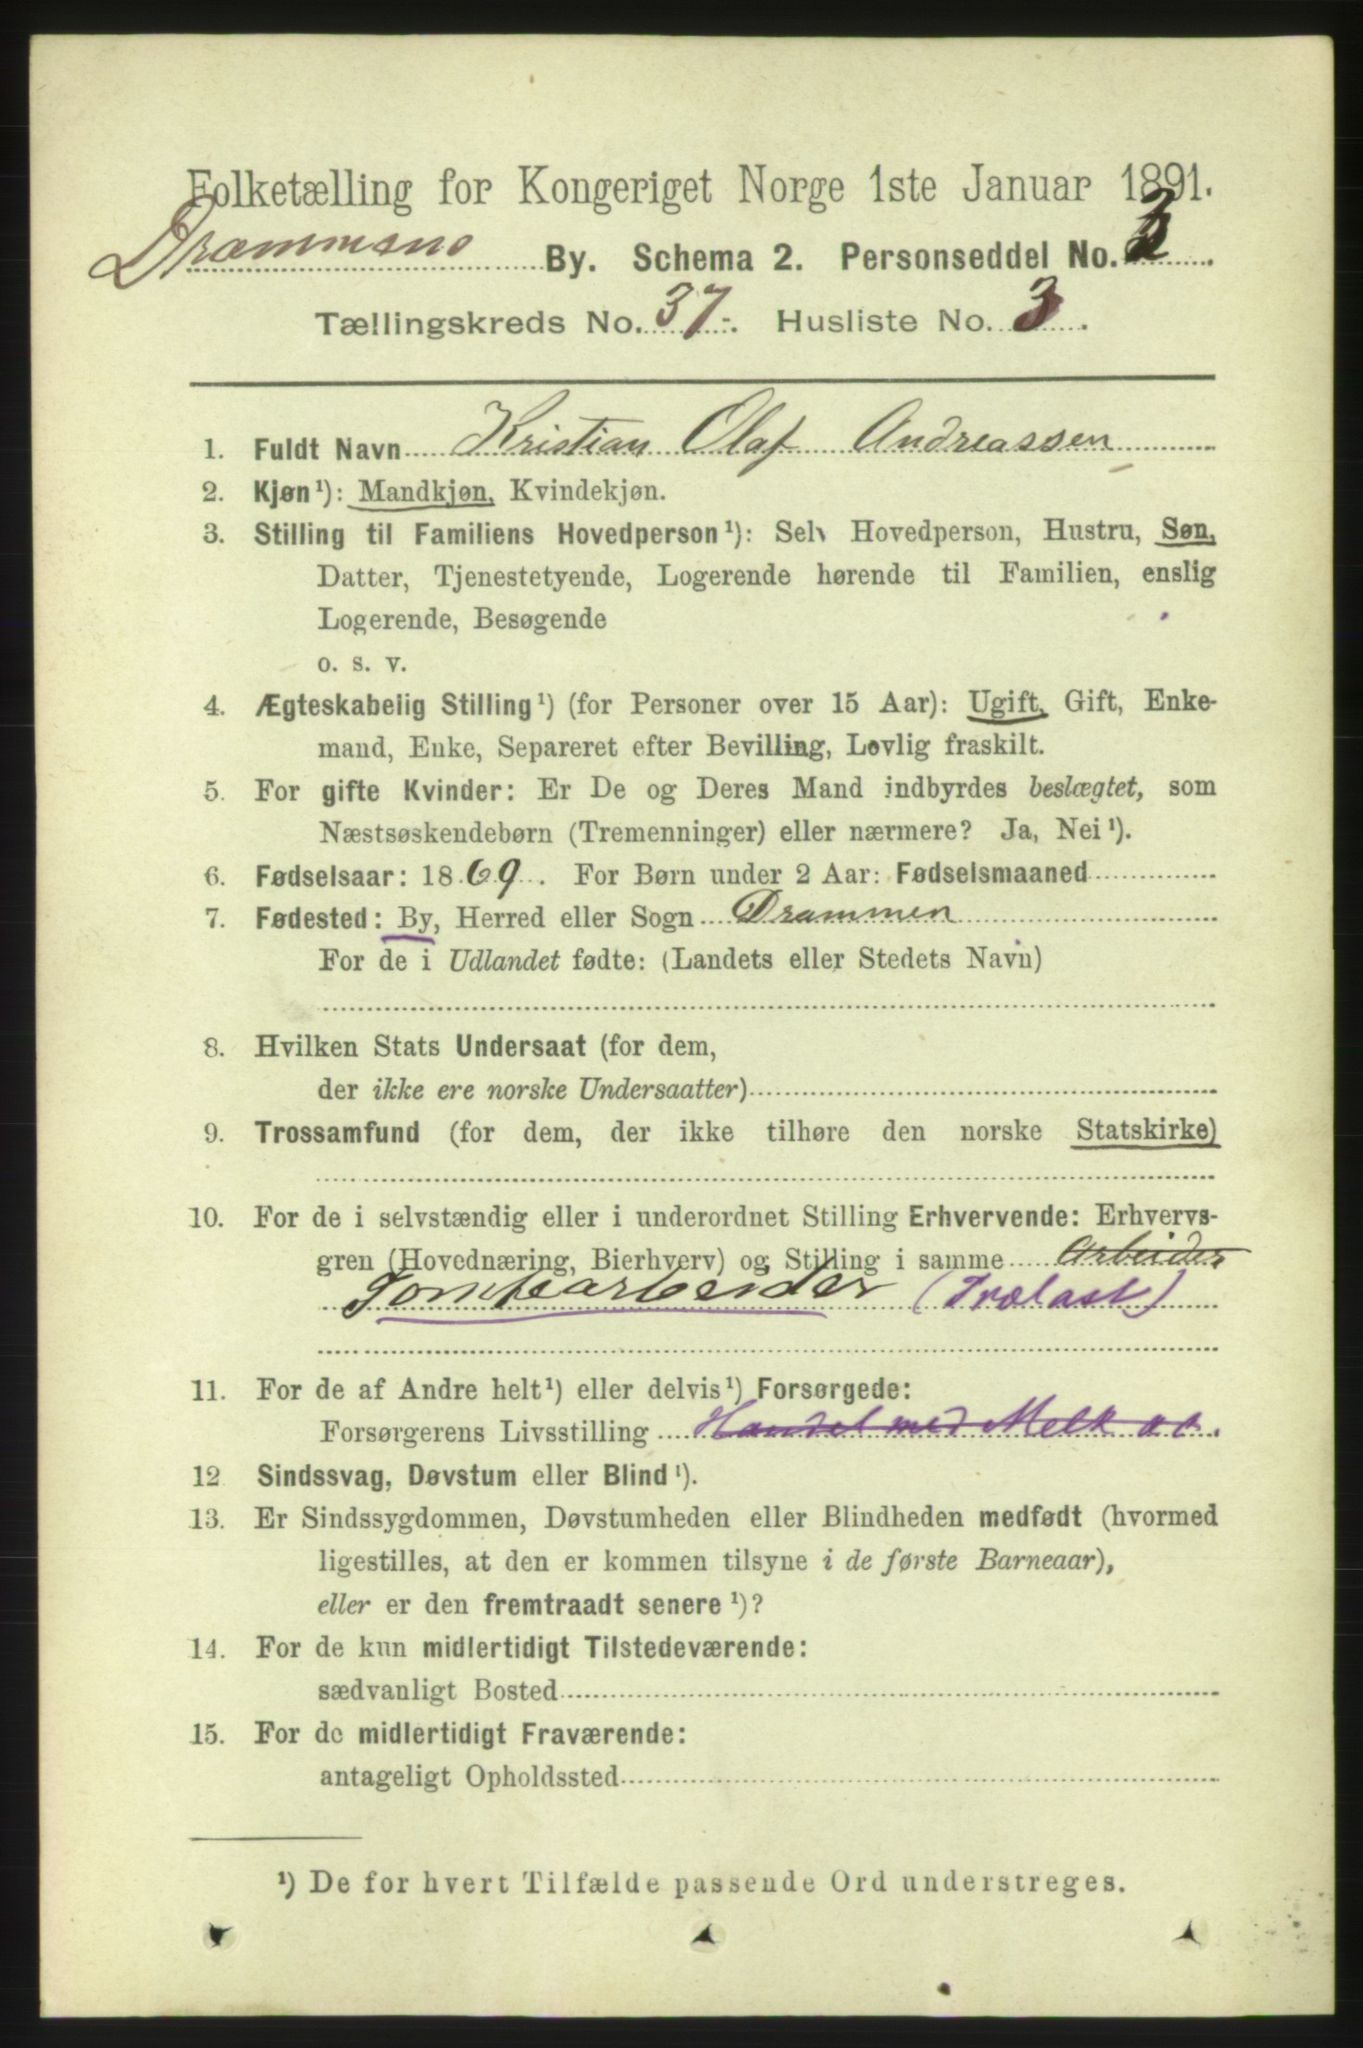 Folketælling for Kongeriget Norge 1ste Januar 1891.
Drammens By. Schema 2. Personseddel No. 3.
Tællingskreds No. 37. Husliste No. 3.
1. Fuldt Navn Kristian Olaf Andreassen
2. Kjøn¹): Mandkjøn, Kvindekjøn.
3. Stilling til Familiens Hovedperson¹): Selv Hovedperson, Hustru, Søn,
Datter, Tjenestetyende, Logerende hørende til Familien, enslig
Logerende, Besøgende
o. s. v.
4. Ægteskabelig Stilling¹) (for Personer over 15 Aar): Ugift, Gift, Enke-
mand, Enke, Separeret efter Bevilling, Lovlig fraskilt.
5. For gifte Kvinder: Er De og Deres Mand indbyrdes beslægtet, som
Næstsøskendebørn (Tremenninger) eller nærmere? Ja, Nei¹).
6. Fødselsaar: 1869. For Børn under 2 Aar: Fødselsmaaned
7. Fødested: By, Herred eller Sogn Drammen
For de i Udlandet fødte: (Landets eller Stedets Navn)
8. Hvilken Stats Undersaat (for dem,
der ikke ere norske Undersaatter)
9. Trossamfund (for dem, der ikke tilhøre den norske Statskirke)
10. For de i selvstændig eller i underordnet Stilling Erhvervende: Erhvervs-
gren (Hovednæring, Bierhverv) og Stilling i samme Arbeider
Tomtearbeider (Trælast)
11. For de af Andre helt¹) eller delvis¹) Forsørgede:
Forsørgerens Livsstilling Handel med Melk
12 Sindssvag, Døvstum eller Blind¹).
13. Er Sindssygdommen, Døvstumheden eller Blindheden medfødt (hvormed
ligestilles, at den er kommen tilsyne i de første Barneaar),
eller er den fremtraadt senere¹)?
14. For de kun midlertidigt Tilstedeværende:
sædvanligt Bosted
15. For de midlertidigt Fraværende:
antageligt Opholdssted
¹) De for hvert Tilfælde passende Ord understreges.